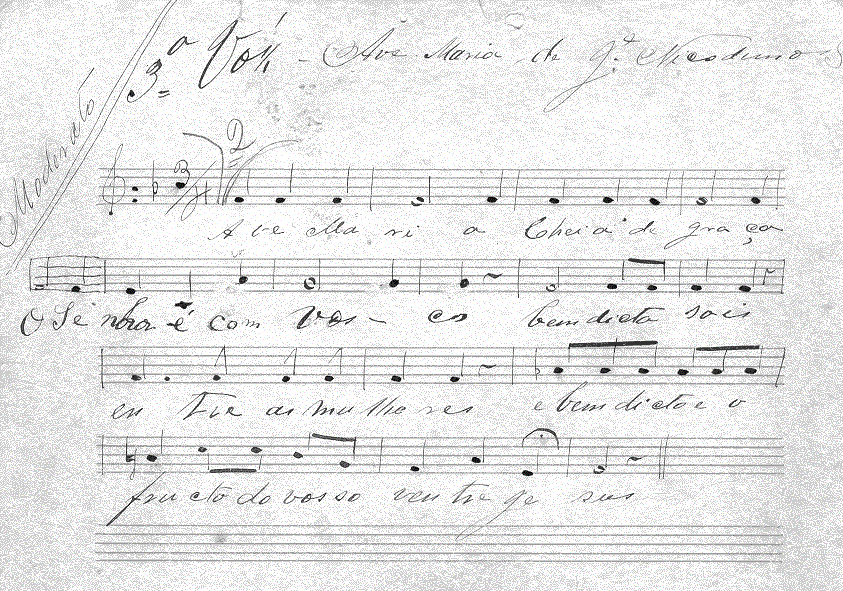 3.ª Vóz - Ave Maria de G.e Nicodemos
Moderato
2
3/4
A ve Ma ri a Cheia de gra ça
O Se nhor é com Vos - co bemdicta sois
en tre as mu lhe res e bem dicto e o
fructo do vosso ven tre Je sus